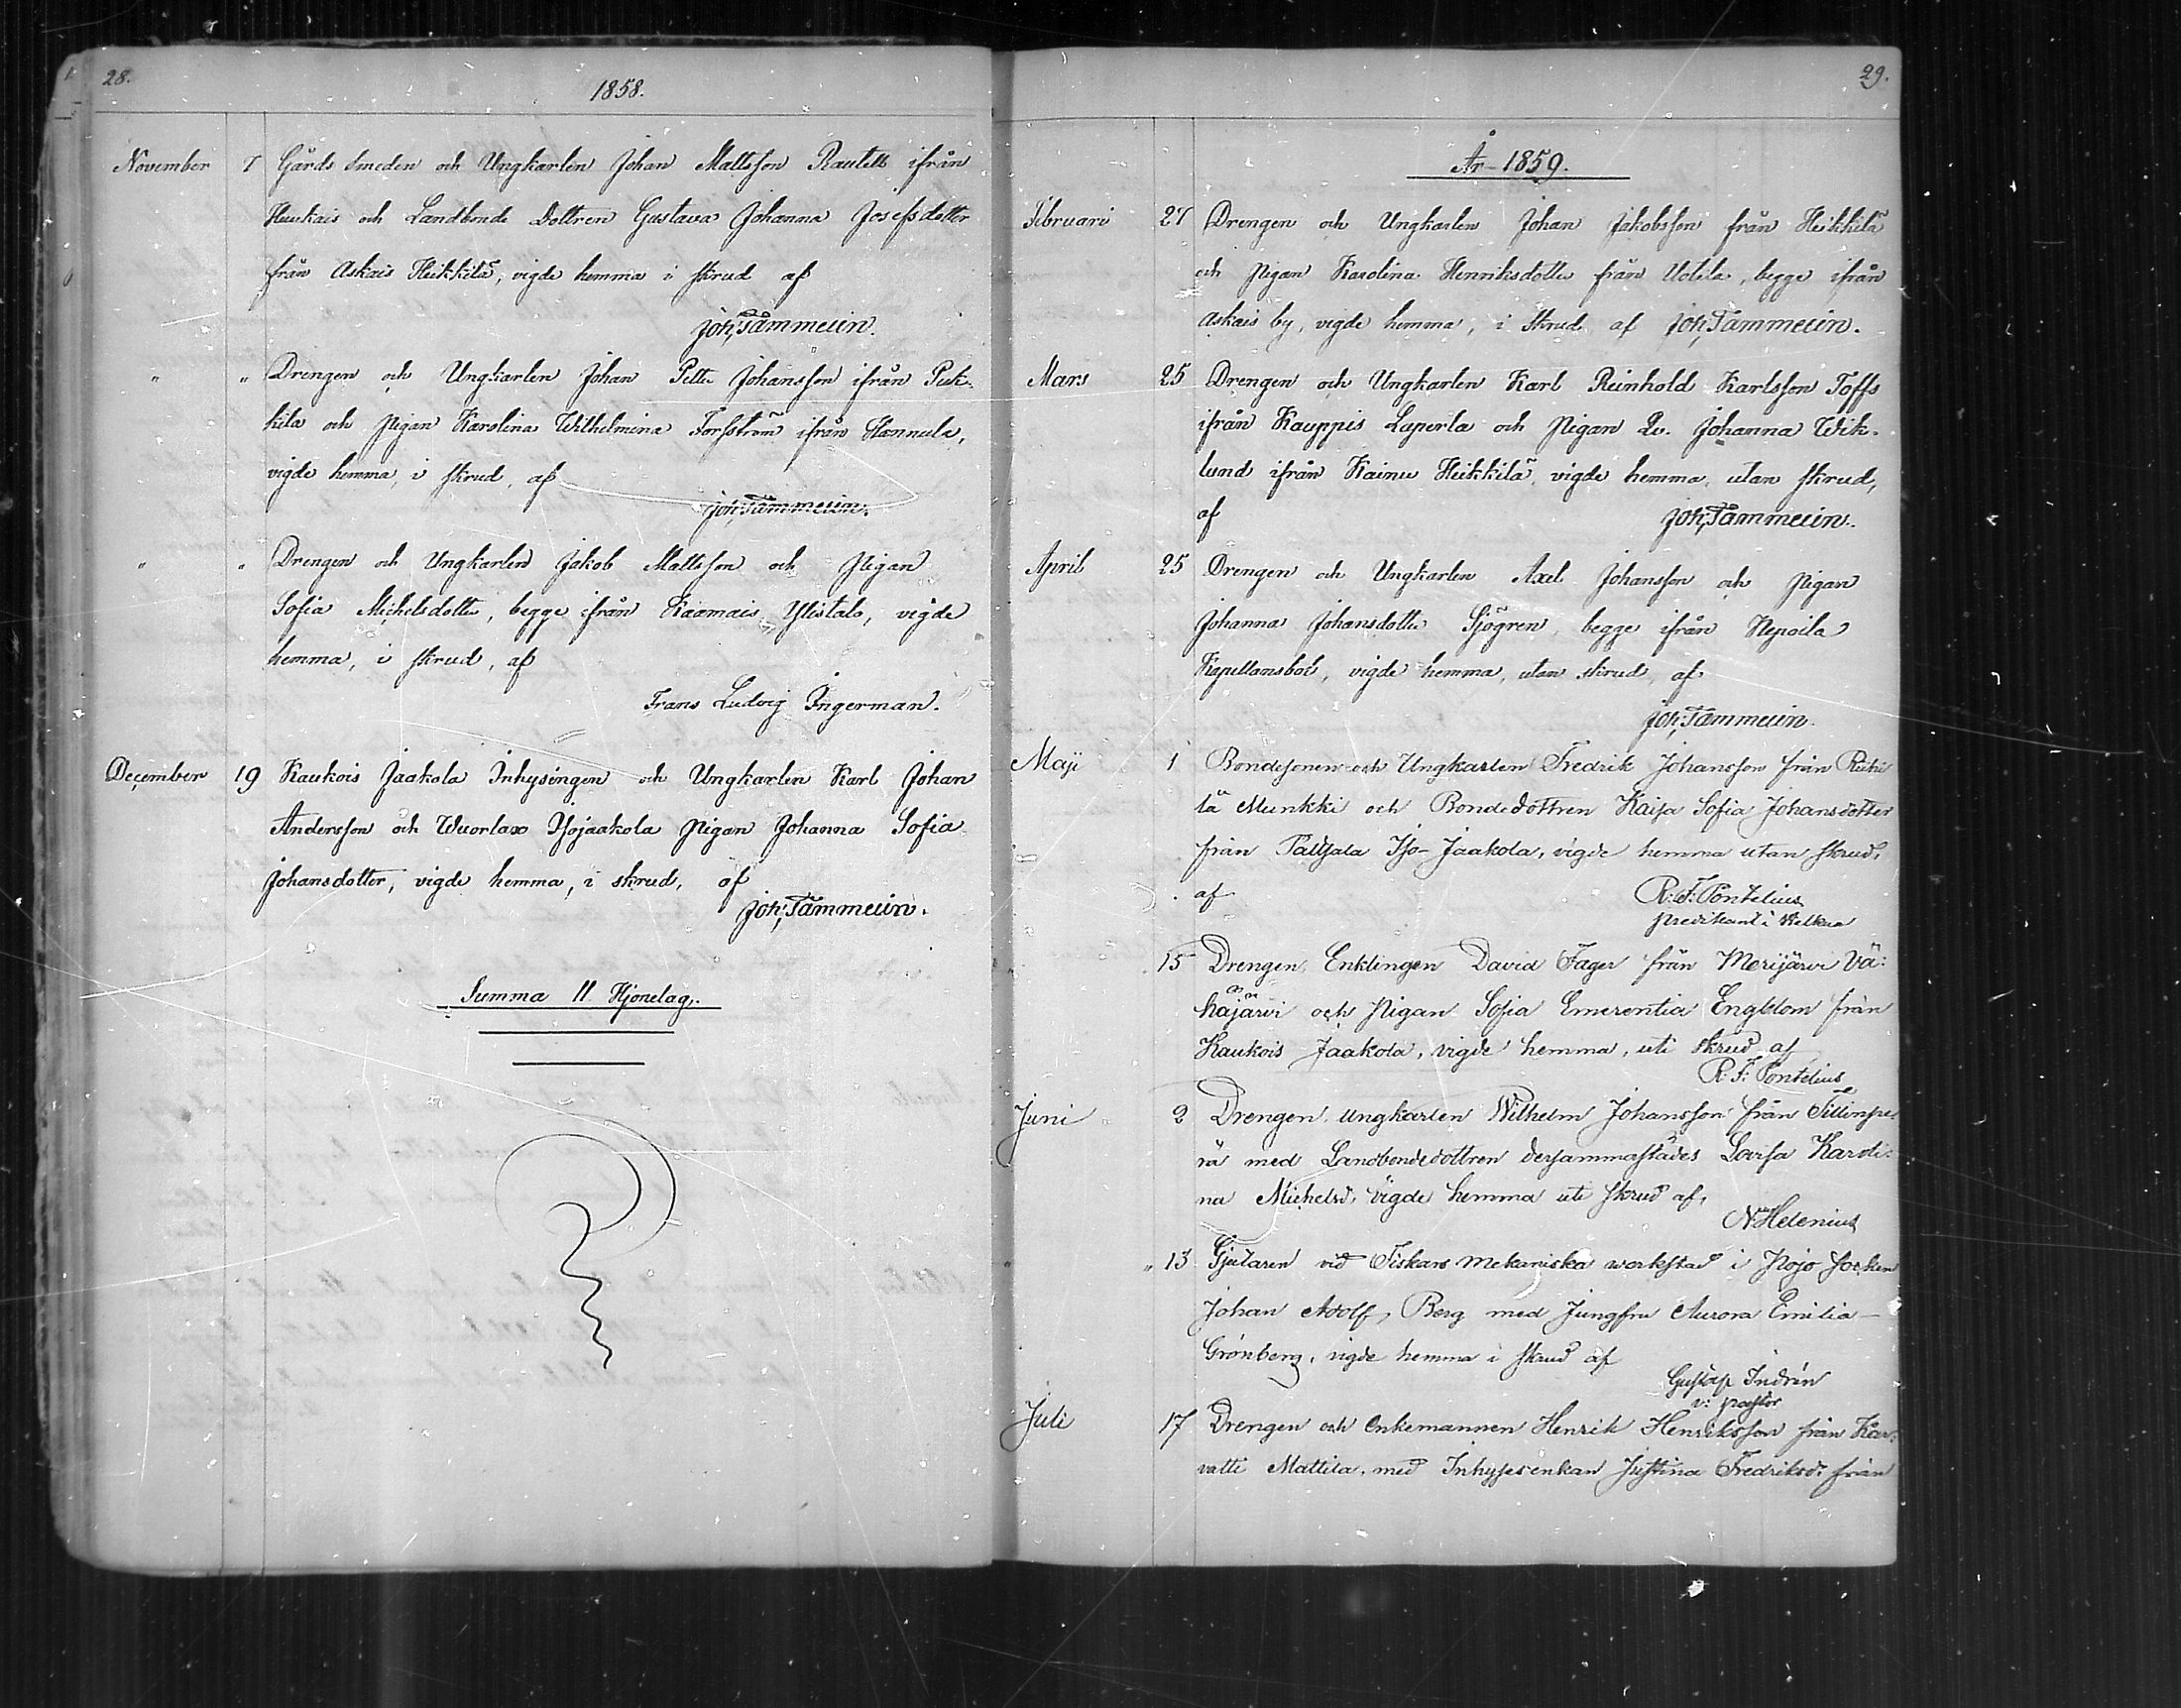 28.
1858.
November 7 Gårds Smeden och Ungkarlen Johan Mattsson Rautell ifrån
och Landbonde Dottren Gustava Johanna Josefsdotter
från Askais Heikkilä, vigde hemma i skrud af
Joh. Tammelin.
" " Drengen och Ungkarlen Johan Petter Johansson ifrån Piek-
kila och Pigan Karolina Wilhelmina Forsström ifrån Hannula,
vigde hemma, i skrud, af
Joh. Tammelin.
" " Drengen och Ungkarlen Jakob Mattsson och Pigan
Sofia Michelsdotter, begge ifrån Kaamais Ylistalo, vigde
hemma, i skrud, af
Frans Ludvig Ingerman.
December 19 Kaukois Jaakola Inhysingen och Ungkarlen Karl Johan
Andersson och Wuorlax Isojaakola Pigan Johanna Sofia
Johansdotter, vigde hemma, i skrud, af
Joh. Tammelin.
Summa 11 Hjonelag.
29.
År 1859.
Februari 27 Drengen och Ungkarlen Johan Jakobsson från Heikkilä
och Pigan Karolina Henriksdotter från Uotila, begge ifrån
Askais by, vigde hemma, i skrud af Joh. Tammelin.
Mars 25 Drengen och Ungkarlen Karl Reinhold Karlsson Toffs
ifrån Kauppis Laperla och Pigan Johanna Wik-
lund ifrån Kainu Heikkilä, vigde hemma, utan skrud,
af Joh. Tammelin.
April 25 Drengen och Ungkarlen Axel Johansson och Pigan
Johanna Johansdotter Sjögren, begge ifrån Nepoila
Kapellansbol, vigde hemma, utan skrud, af
Joh. Tammelin.
Maji 1 Bondesonen och Ungkarlen Fredrik Johansson från
lä Munkki och Bondedottren Kaisa Sofia Johansdotter
från Iso-Jaakola, vigde hemma utan skrud,
af R. F. Pontelius
predikant i
15 Drengen, Enklingen David Fager från Merijärvi Vä:
häjärvi och Pigan Sofia Emerentia Engblom från
Kaukois Jaakola, vigde hemma, uti skrud af
R. F. Pontelius
Juni 2 Drengen, ungkarlen Wilhelm Johansson från Tillinpe
rä med Landbondedottren dersammastädes Lovisa Karoli-
na Michelsd. vigde hemma uti skrud af,
N Helenius
" 13 Gjutaren vid Fiskars mekaniska verkstad i Pojo Socken
Johan Adolf Berg med Jungfru Aurora Emilia
Grönberg, vigde hemma i skrud af
Gustaf Indrén
v: pastor
Juli 17 Drengen och Enkemannen Henrik Henriksson från Kar-
vatti Mattila, med Inhysesenkan Justina Fredriksd. från